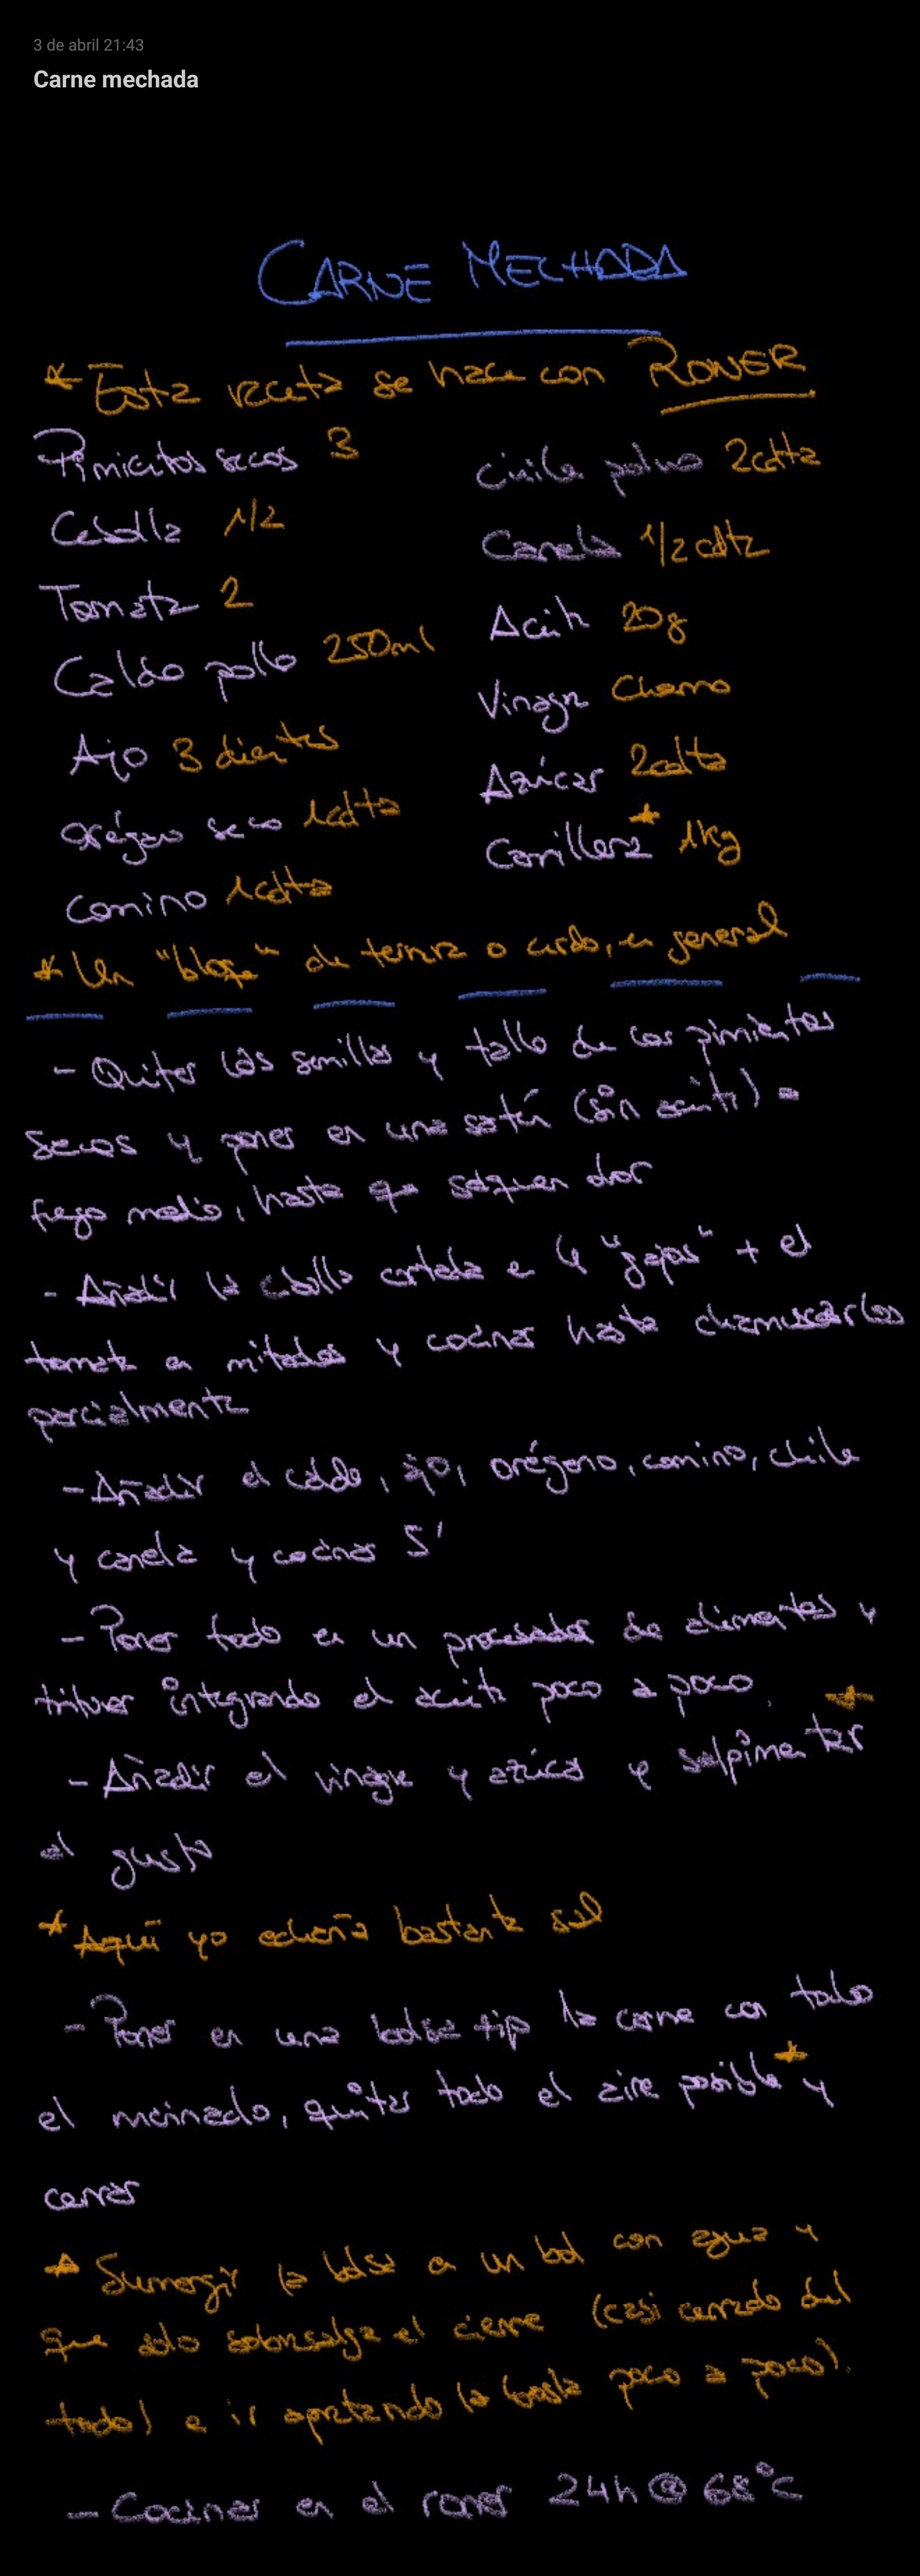 3 de abril 21:43
Carne mechada
CARNE MECHADA
* Esta receta se hace con RONER
Pimientos secos 3
Cebolla 1/2
Tomate 2
Caldo pollo 250ml
Ajo 3 dientes
Orégano seco 1cdta
Comino 1cdta
Chile polvo 2cdta
Canela 1/2 cdta
Aceite 20g
Vinagre Chorro
Azúcar 2cdta
Carrillera * 1kg
* Un "bloque" de ternera o cerdo, en general
- Quitar las semillas y tallo de los pimientos
secos y poner en una sartén (sin aceite) a
fuego medio, hasta que saquen olor
- Añadir la cebolla cortada en 4 "gajos" + el
tomate en mitades y cocinar hasta chamuscarlos
parcialmente
- Añadir el caldo, ajo, orégano, comino, chile
y canela y cocinar 5'
- Poner todo en un procesador de alimentos y
triturar integrando el aceite poco a poco.
- Añadir el vinagre y azúcar y salpimentar *
al gusto
* Aquí yo echaría bastante sal
- Poner en una bolsa zip la carne con todo
el marinado, quitar todo el aire posible * y
cerrar
* Sumergir la bolsa en un bol con agua y
que solo sobresalga el cierre (casi cerrado del
todo) e ir apretando la bolsa poco a poco).
- Cocinar en el roner 24h @ 68°C